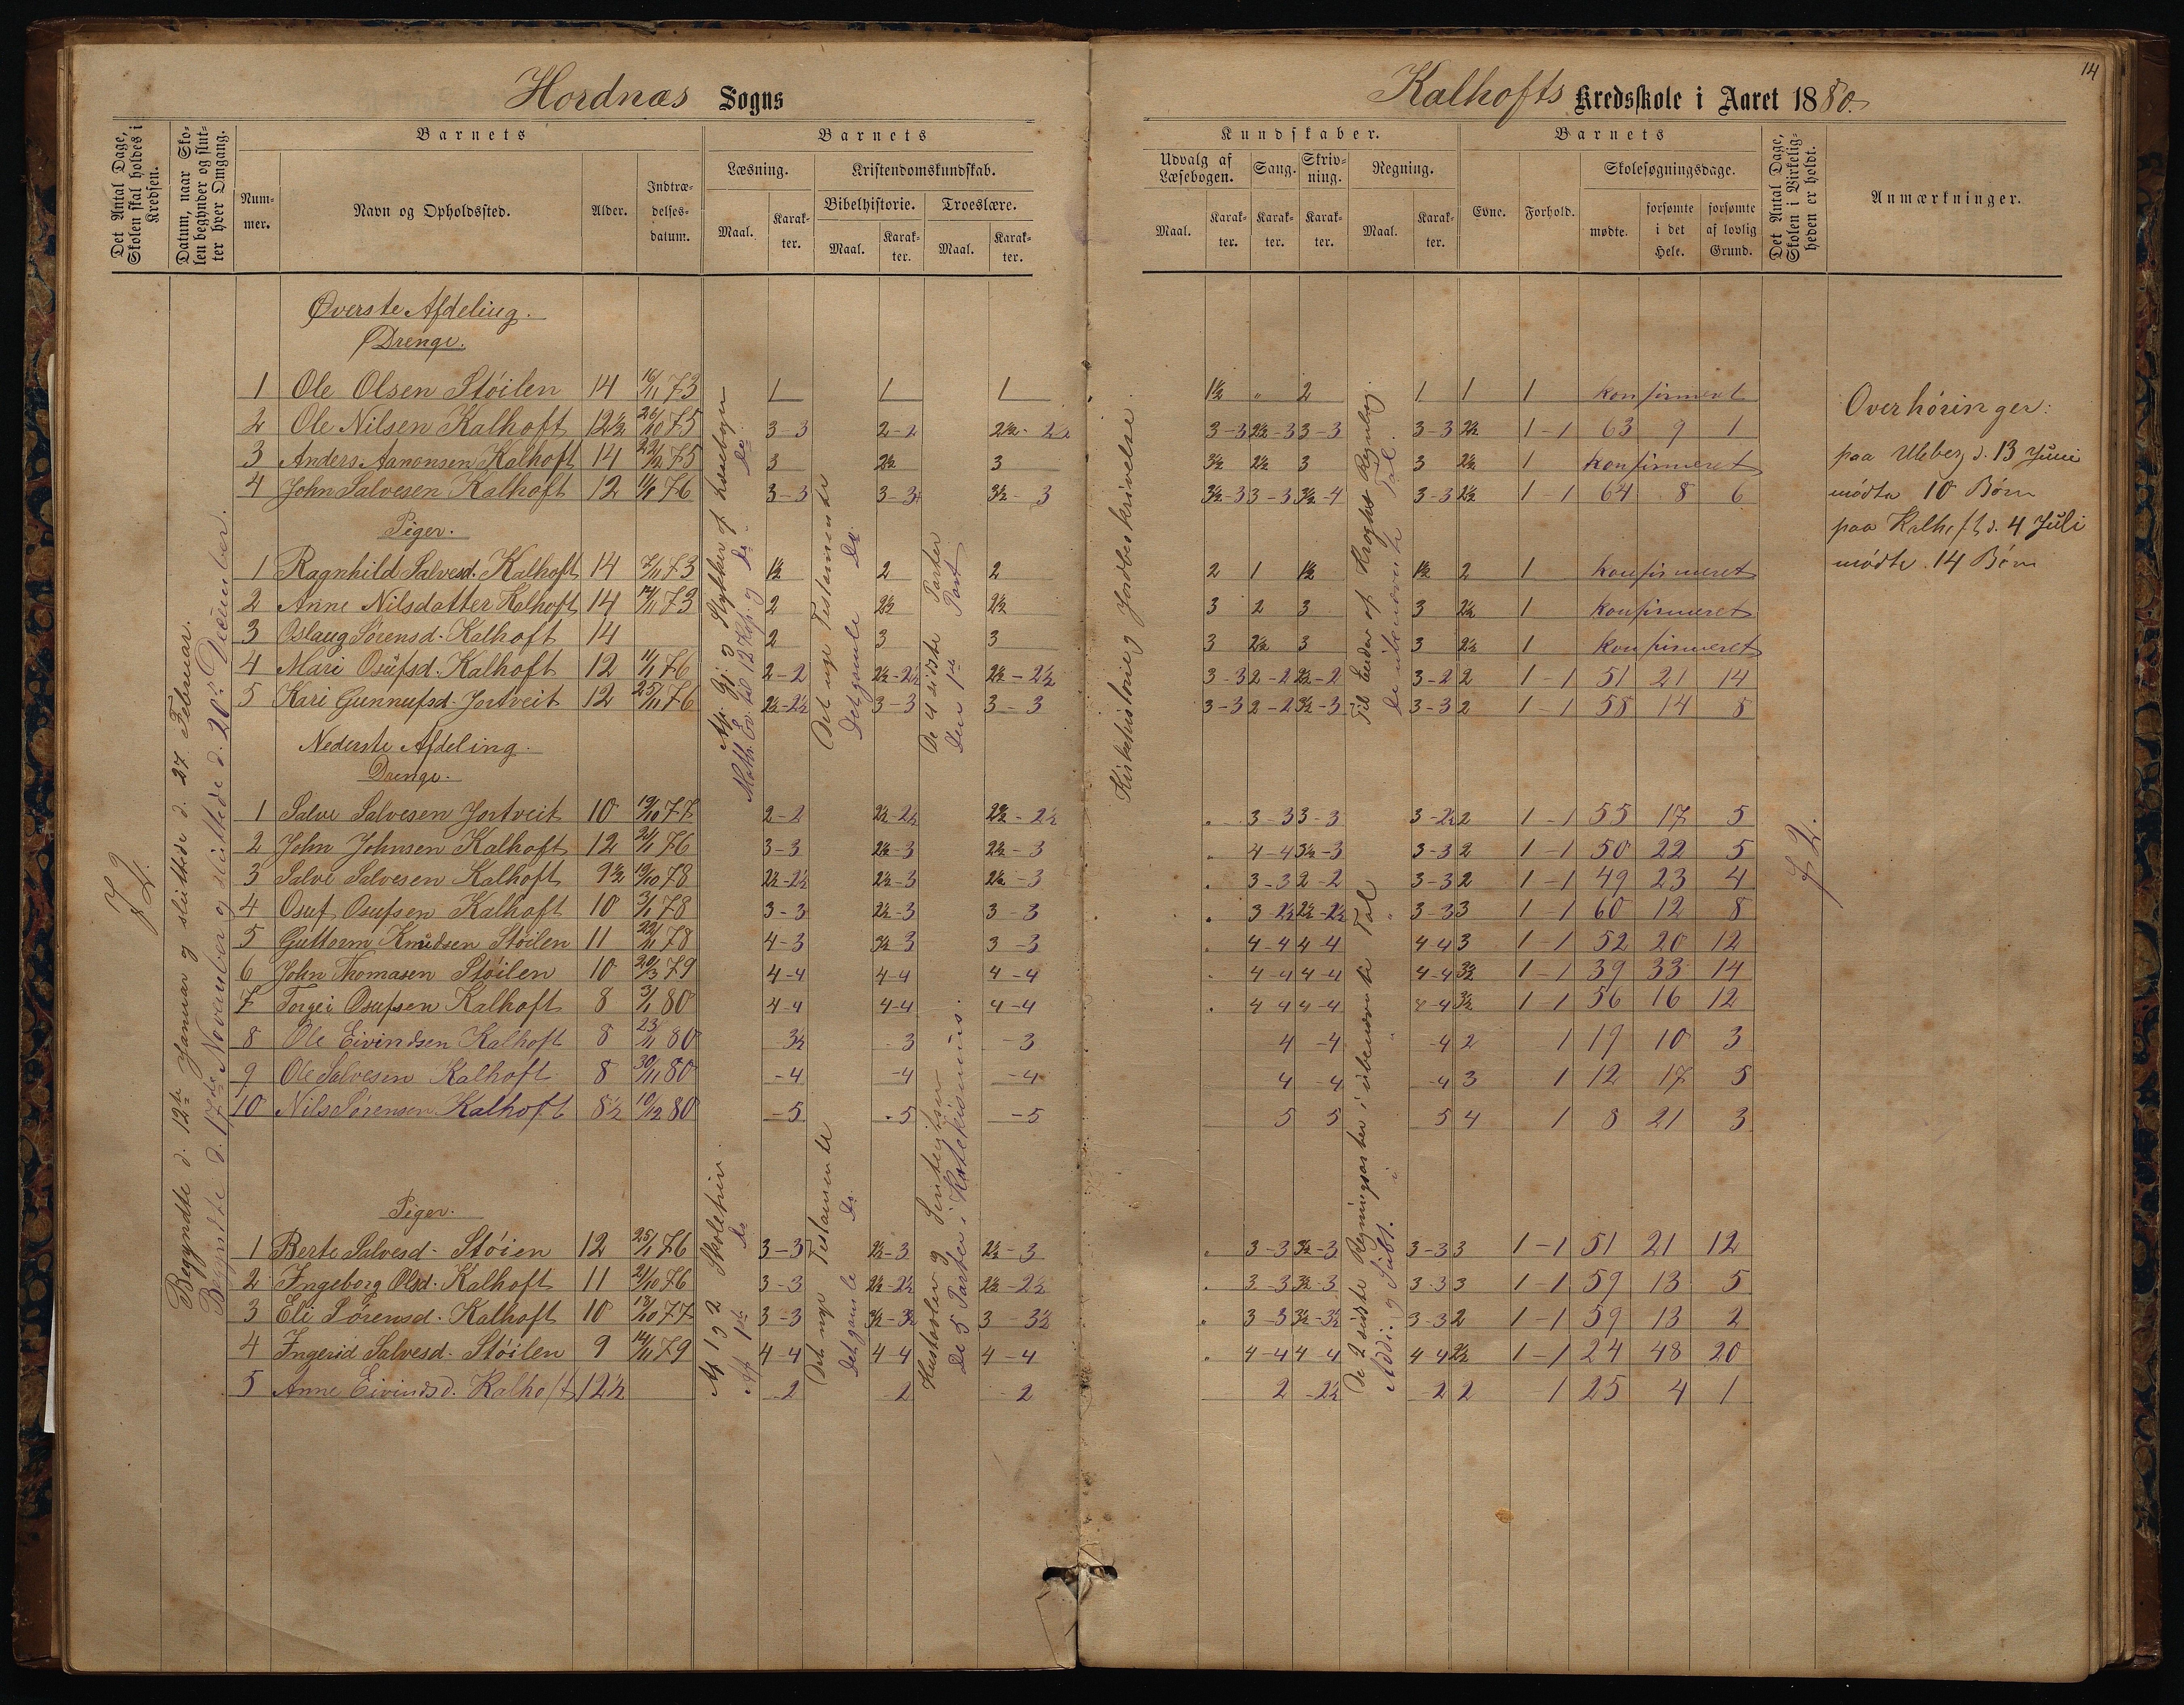 14
Hordnæs Sogns
Kalhofts Kredsskole i Aaret 1880.
Det Antal Dage, Skolen skal holdes i Kredsen.
Datum, naar Skolen begynder og slutter hver Omgang.
Barnets
Nummer.
Navn og Opholdssted.
Alder.
Indtrædelsesdatum.
Barnets
Læsning.
Maal.
Karakter.
Kristendomskundskab.
Bibelhistorie.
Maal.
Karakter.
Troeslære.
Maal.
Karakter.
Kundskaber.
Udvalg af Læsebogen.
Maal.
Karakter.
Sang.
Karakter.
Skrivning.
Karakter.
Regning.
Maal.
Karakter.
Barnets
Evne.
Forhold.
Skolesøgningsdage.
mødte.
forsømte i det Hele.
forsømte af lovlig Grund.
Det Antal Dage, Skolen i Virkeligheden er holdt.
Anmærkninger.
72.
Begyndte d. 12te Januar og sluttede d. 27. Februar.
Begyndte d. 17de November og sluttede d. 20de December.
Øverste Afdeling.
Drenge.
1 Ole Olsen Støilen 14 16/11 73 1 1 1 1½ „ 2 1 1 1 konfirmeret
2 Ole Nilsen Kalhoft 12½ 26/10 75 3-3 2-2 2½-2½ 3-3 2½-3 3-3 3-3 2½ 1-1 63 9 1
3 Anders Aanonsen Kalhoft 14 22/12 75 3 2½ 3 3½ 2½ 3 3 2½ 1 konfirmeret
4 John Salvesen Kalhoft 12 11/1 76 3-3 3-3 3½-3 3½-3 3-3 3½-4 3-3 2½ 1-1 64 8 6
Piger.
1 Ragnhild Salvesd. Kalhoft 14 7/11 73 1½ 2 2 2 1 1½ 1½ 2 1 konfirmeret
2 Anne Nilsdatter Kalhoft 14 14/11 73 2 2½ 2½ 3 2 3 3 2½ 1 konfirmeret
3 Oslaug Sørensd. Kalhoft 14 2 3 3 3 2½ 3 3 2½ 1 konfirmeret
4 Mari Osufsd. Kalhoft 12 11/1 76 2-2 2½-2½ 2½-2½ 3-3 2-2 2½-2 3-2 2 1-1 51 21 14
5 Kari Gunnufsd. Jortveit 12 25/11 76 2½-2½ 3-3 3-3 3-3 2-2 3½-3 3-3 2 1-1 58 14 8
Det nye Testamente
Det gamle Do.
De 4 sidste Parter
Den 1ste Part
Kirkehistorie og Jordbeskrivelse.
Til Enden af Kroghs Regnebog.
De ubenævnte Tal.
Nederste Afdeling.
Drenge.
1 Salve Salvesen Jortveit 10 19/10 77 2-2 2½-2½ 2½-2½ „ 3-3 3-3 3-2½ 2 1-1 55 17 5
2 John Johnsen Kalhoft 12 24/1 76 3-3 2½-3 2½-3 „ 4-4 3½-3 3-3 2 1-1 50 22 5
3 Salve Salvesen Kalhoft 9½ 19/10 78 2½-2½ 2½-3 2½-3 „ 3-3 2-2 3-3 2 1-1 49 23 4
4 Osuf Osufsen Kalhoft 10 3/1 78 3-3 2½-3 3-3 „ 3-2½ 2½-2½ 3-3 3 1-1 60 12 8
5 Guttorm Knudsen Støilen 11 22/11 78 4-3 3½-3 3-3 „ 4-4 4-4 4-4 3 1-1 52 20 12
6 John Thomasen Støilen 10 20/3 79 4-4 4-4 4-4 „ 4-4 4-4 4-4 3½ 1-1 39 33 14
7 Torgei Osufsen Kalhoft 8 3/1 80 4-4 4-4 4-4 „ 4-4 4-4 4-4 3½ 1-1 56 16 12
8 Ole Eivindsen Kalhoft 8 23/11 80 3½ -3 -3 4 -4 -4 2 1 19 10 3
9 Ole Salvesen Kalhoft 8 30/11 80 -4 -4 -4 4 -4 -4 3 1 12 17 5
10 Nils Sørensen Kalhoft 8½ 10/12 80 -5 -5 -5 5 5 5 4 1 8 21 3
Piger.
1 Berte Salvesd. Støien 12 25/1 76 3-3 2½-3 2½-3 „ 3-3 3½-3 3-3 3 1-1 51 21 12
2 Ingeborg Olsd. Kalhoft 11 21/10 76 3-3 2½-2½ 2½-2½ „ 3-3 3½-3 3-3 3 1-1 59 13 5
3 Eli Sørensd. Kalhoft 10 18/10 77 3-3 3½-3½ 3-3½ „ 3-3 3½-3½ 3-3 2 1-1 59 13 2
4 Ingerid Salvesd. Støilen 9 14/11 79 4-4 4-4 4-4 „ 4-4 4-4 4-4 2½ 1-1 24 48 20
5 Anne Eivindsd. Kalhoft 12½ -2 -2 -2 2 -2½ -2 2 -1 25 4 1
Af 1 og 2 Skoletrin
Af 1ste do
Det nye Testamente
Det gamle Do.
Hustavler og
De 5 Parter i Katekismus.
De 2 sidste Regningsarter i ubenævnte Tal
Addi. og Subt. i „ „
72.
Overhøringer:
paa Uleberg d. 13 Juni
mødte 10 Børn
paa Kalhoft d. 4 Juli
mødte 14 Børn